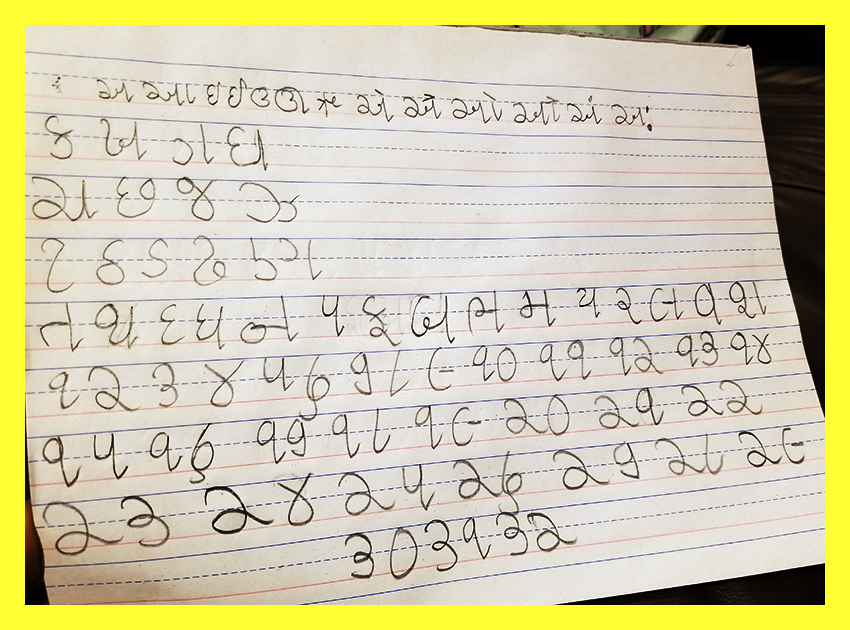 અ આ ઇ ઈ ઉ ઊ ઋ એ ઐ ઓ ઔ અં અઃ
ક ખ ગ ઘ
ચ છ જ ઝ
ટ ઠ ડ ઢ ણ
ત થ દ ધ ન પ ફ બ ભ મ ય ર લ વ શ
૧ ૨ ૩ ૪ ૫ ૬ ૭ ૮ ૯ ૧૦ ૧૧ ૧૨ ૧૩ ૧૪
૧૫ ૧૬ ૧૭ ૧૮ ૧૯ ૨૦ ૨૧ ૨૨
૨૩ ૨૪ ૨૫ ૨૬ ૨૭ ૨૮ ૨૯
૩૦ ૩૧ ૩૨